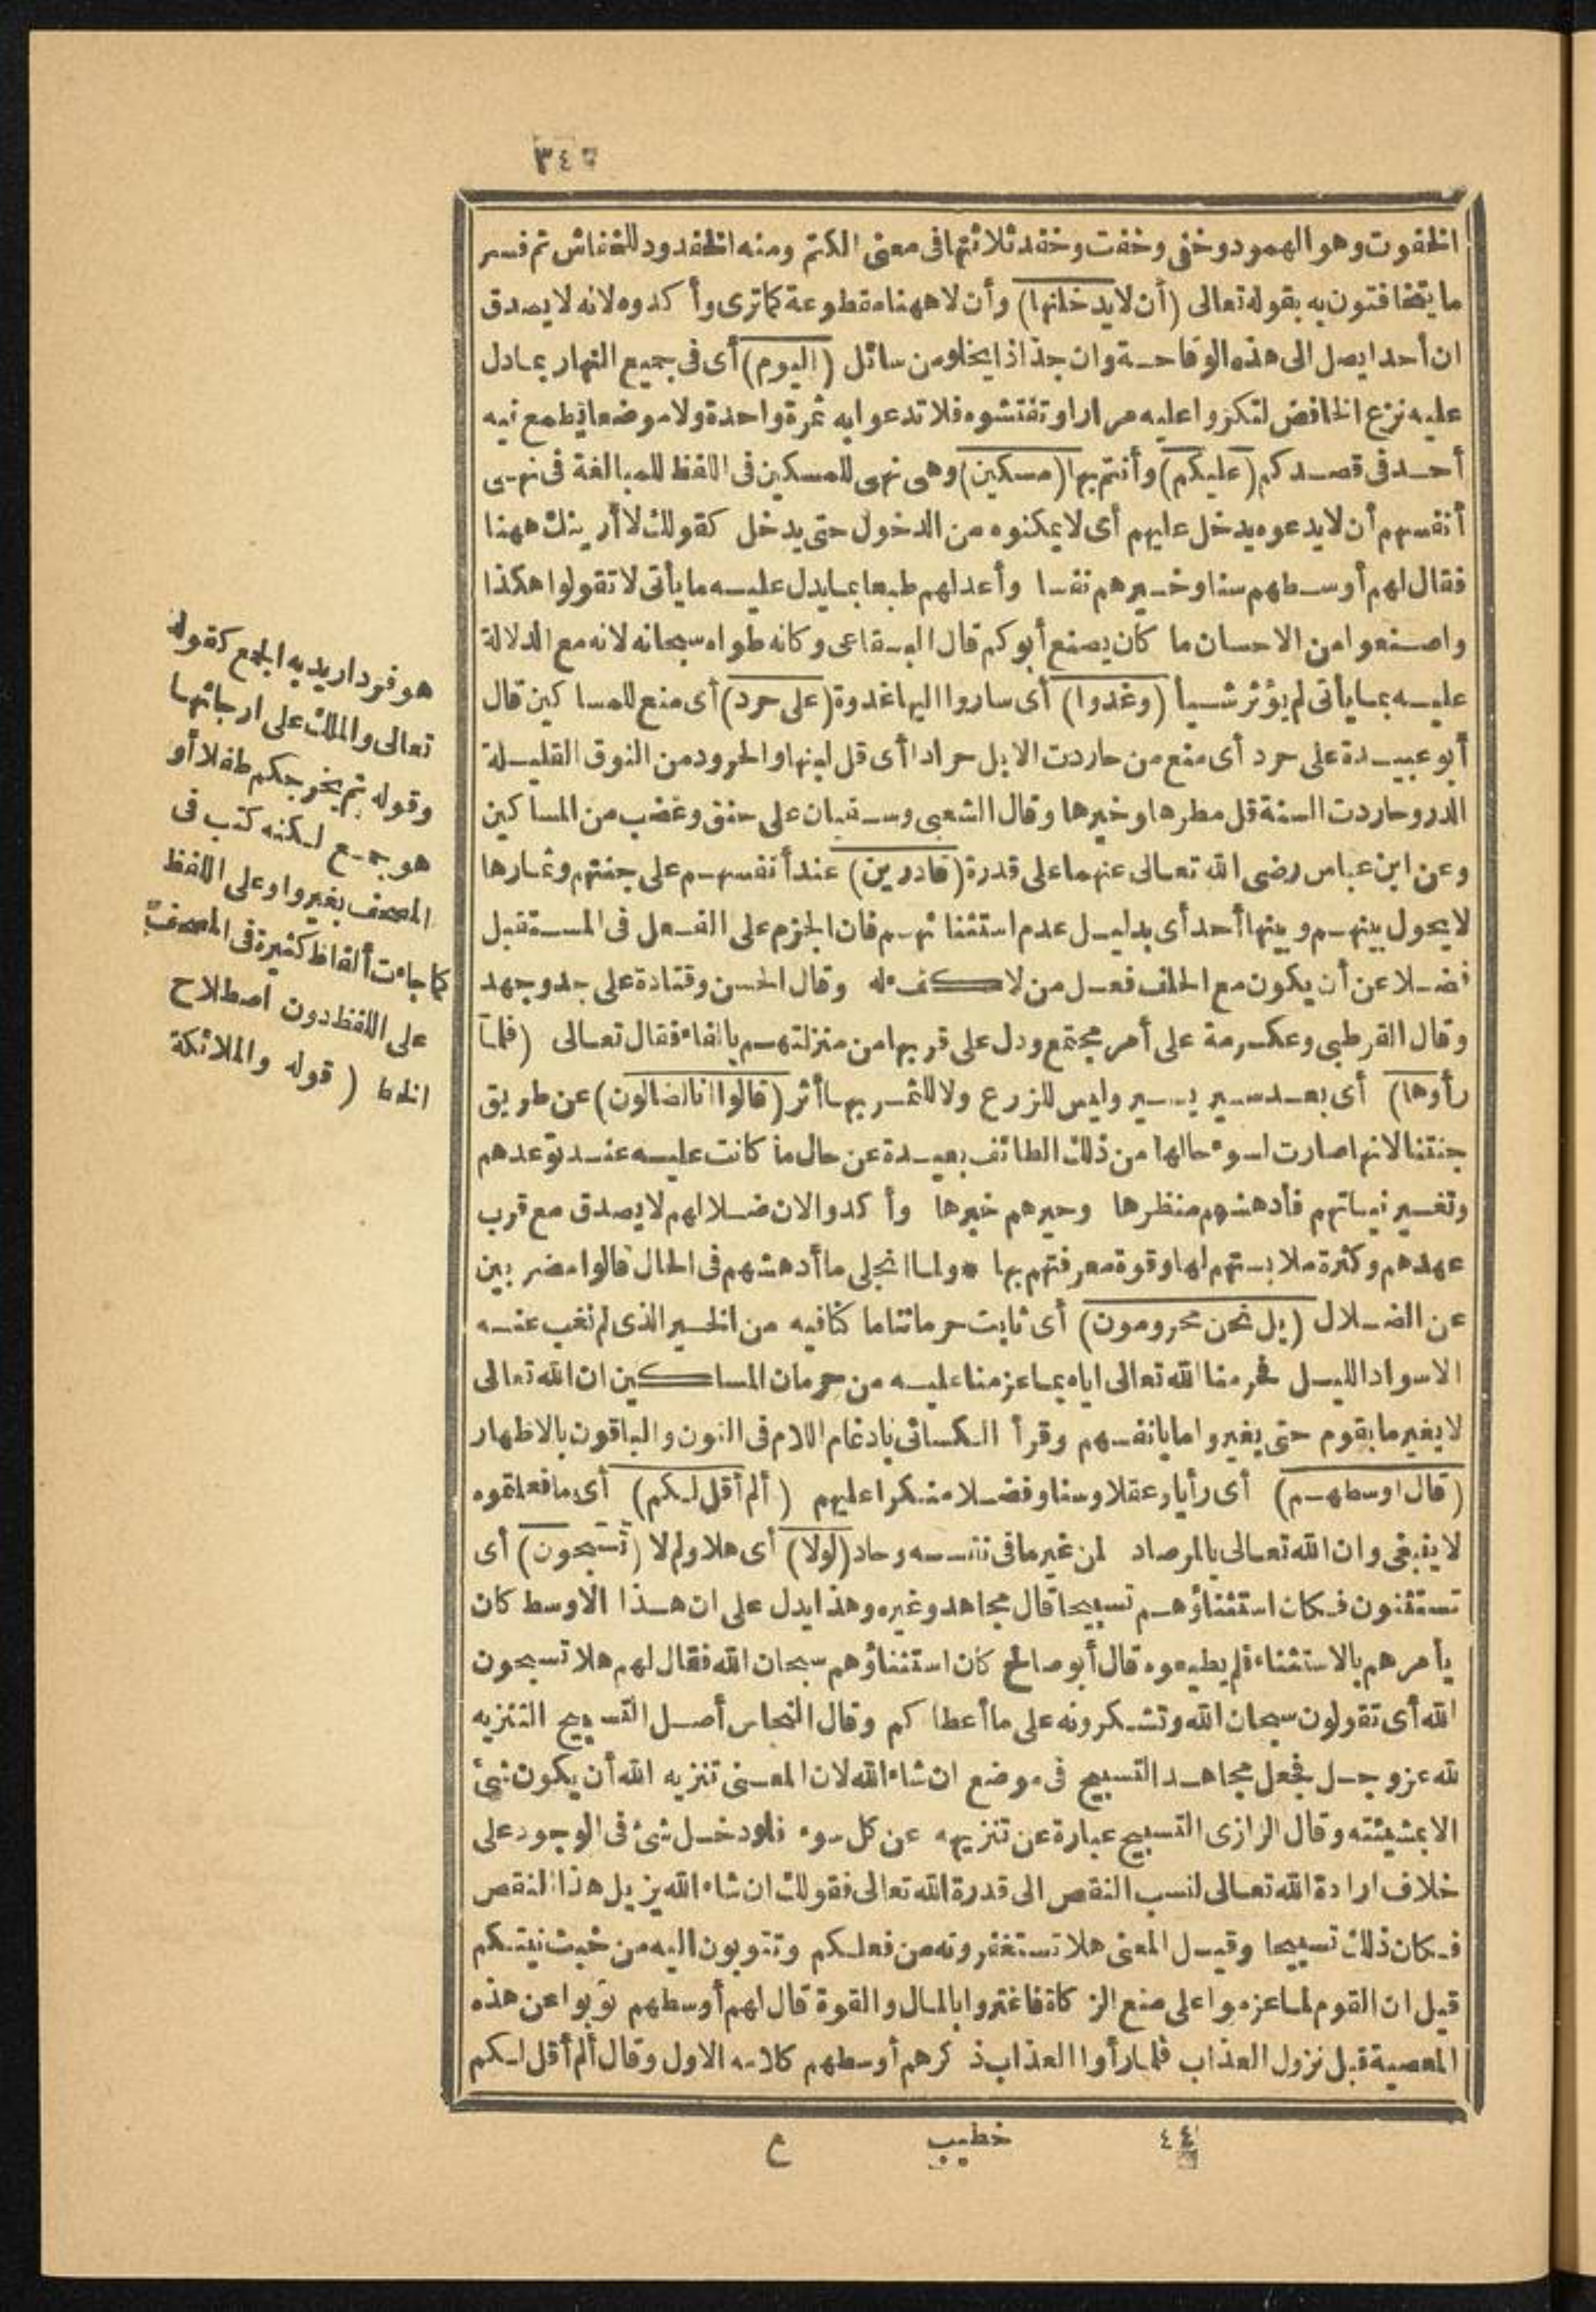 ٣٤٥
الخفوت وهو الهمود وخفى وخفت وخفد ثلاثتها فى معنى الكتم ومنه الخفدود للخفاش ثم فسر
ما يتخافتون به بقوله تعالى (أن لا يدخلنها) وأن لا ههنا مقطوعة كما ترى وأكدوه لانه لا يصدق
ان أحدا يصل الى هذه الوقاحة وان جذاذا يخلو من سائل (اليوم) أى فى جميع النهار بما دل
عليه نزع الخافض لتكروا عليه مرارا وتفتشوه فلا تدعوا به ثمرة واحدة ولا موضعا يطمع فيه
أحد فى قصدكم (عليكم) وأنتم بها (مسكين) وهى نهى للمسكين فى اللفظ للمبالغة فى نهى
أنفسهم أن لا يدعوه يدخل عليهم أى لا يمكنوه من الدخول حتى يدخل كقولك لا أرينك ههنا
فقال لهم أوسطهم سنا وخيرهم نفسا وأعدلهم طبعا بما يدل عليه ما يأتى لا تقولوا هكذا
واصنعوا من الاحسان ما كان يصنع أبوكم قال البقاعى وكانه طواه سبحانه لانه مع الدلالة
عليه بما يأتى لم يؤثر شيأ (وغدوا) أى ساروا اليها غدوة (على حرد) أى منع للمساكين قال
أبو عبيدة على حرد أى منع من حاردت الابل حرادا أى قل لبنها والحرود من النوق القليلة
الدر وحاردت السنة قل مطرها وخيرها وقال الشعبى وسفيان على حنق وغضب من المساكين
وعن ابن عباس رضى الله تعالى عنهما على قدرة (قادرين) عند أنفسهم على جنتهم وثمارها
لا يحول بينهم وبينها أحد أى بدليل عدم استثنائهم فان الجزم على الفعل فى المستقبل
فضلا عن أن يكون مع الحلف فعل من لا كفء له وقال الحسن وقتادة على جد وجهد
وقال القرطبى وعكرمة على أمر مجتمع ودل على قربها من منزلتهم بالفاء فقال تعالى (فلما
رأوها) أى بعد سير يسير وليس للزرع ولا للثمر بها أثر (قالوا انا لضالون) عن طريق
جنتنا لانها صارت لسوء حالها من ذلك الطائف بعيدة عن حال ما كانت عليه عند توعدهم
وتغسير نياتهم فأدهشهم منظرها وحيرهم خبرها وأكدوا لان ضلالهم لا يصدق مع قرب
عهدهم وكثرة ملابستهم لها وقوة معرفتهم بها * ولما انجلى ما أدهشهم فى الحال قالوا مضربين
عن الضلال (بل نحن محرومون) أى ثابت حرماننا ما كنا فيه من الخير الذى لم نغب عنه
الا سواد الليل فحرمنا الله تعالى اياه بما عزمنا عليه من حرمان المساكين ان الله تعالى
لا يغير ما بقوم حتى يغيروا ما بانفسهم وقرأ الكسائى بادغام اللام فى النون والباقون بالاظهار
(قال اوسطهم) أى رأيا وعقلا وسنا وفضلا منكرا عليهم (ألم أقل لكم) أى ما فعلتموه
لا ينبغى وان الله تعالى بالمرصاد لمن غير ما فى نفسه وحاد (لولا) أى هلا ولم لا (تسبحون) أى
تستثنون فكان استثناؤهم تسبيحا قال مجاهد وغيره وهذا يدل على ان هذا الاوسط كان
يأمرهم بالاستثناء فلم يطيعوه قال أبو صالح كان استثناؤهم سبحان الله فقال لهم هلا تسبحون
الله أى تقولون سبحان الله وتشكرونه على ما أعطاكم وقال النحاس أصل التسبيح التنزيه
لله عز وجل فجعل مجاهد التسبيح فى موضع ان شاء الله لان المعنى تنزيه الله أن يكون شئ
الا بمشيئته وقال الرازى التسبيح عبارة عن تنزيهه عن كل سوء فلو دخل شئ فى الوجود على
خلاف ارادة الله تعالى لنسب النقص الى قدرة الله تعالى فقولك ان شاء الله يزيل هذا النقص
فكان ذلك تسبيحا وقيل المعنى هلا تستغفرونه من فعلكم وتتوبون اليه من خبث نيتكم
قيل ان القوم لما عزموا على منع الزكاة فاغتروا بالمال والقوة قال لهم أوسطهم توبوا عن هذه
المعصية قبل نزول العذاب فلما رأوا العذاب ذكرهم أوسطهم كلامه الاول وقال ألم أقل لكم
هو فرد اريد به الجمع كقوله
تعالى والملك على ارجائها
وقوله ثم يخرجكم طفلا أو
هو جمع لكنه كتب فى
المصحف بغير واو على اللفظ
كما جاءت ألفاظ كثيرة فى المصحف
على اللفظ دون اصطلاح
الخط (قوله والملائكة
٤٤ خطيب ع